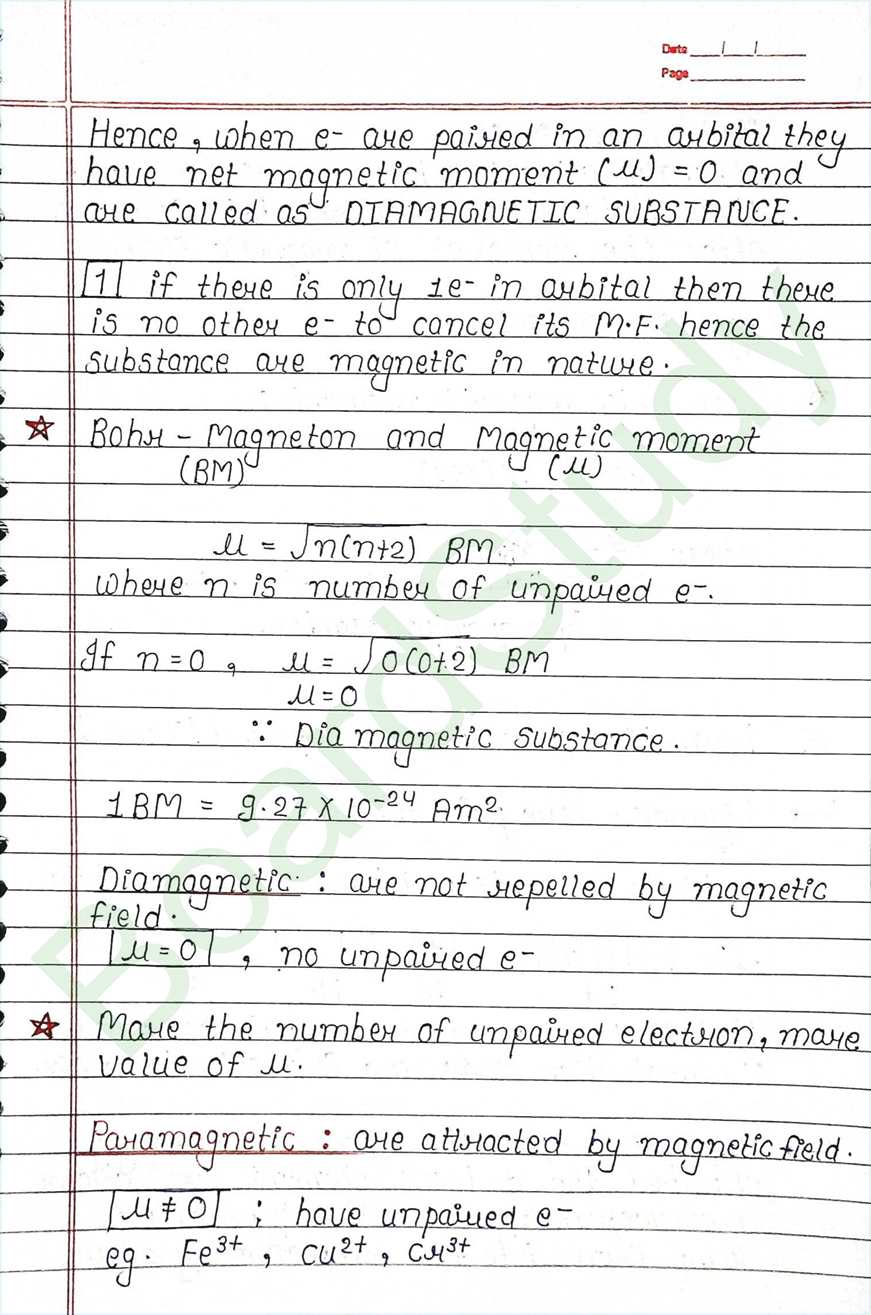 Date __/__/__
Page ______
Hence, when e- are paired in an orbital they
have net magnetic moment (μ) = 0 and
are called as DIAMAGNETIC SUBSTANCE.
1 if there is only 1e- in orbital then there
is no other e- to cancel its M.F. hence the
substance are magnetic in nature.
☆ Bohr - Magneton and Magnetic moment
(BM) (μ)
μ = √n(n+2) BM
where n is number of unpaired e-.
If n=0, μ = √0(0+2) BM
μ=0
∵ Dia magnetic substance.
1BM = 9.27 X 10⁻²⁴ Am².
Diamagnetic : are not repelled by magnetic
field.
μ = 0 , no unpaired e-
☆ More the number of unpaired electron, more
value of μ.
Paramagnetic : are attracted by magnetic field.
μ ≠ 0 ; have unpaired e-
eg. Fe³⁺, Cu²⁺, Cr³⁺
BoardStudy